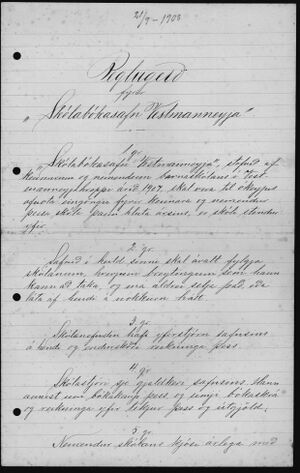 21/9 - 1908
Reglugerð
fyrir
„Skólabókasafn Vestmanneyja“
1. gr.
„Skólabókasafn Vestmanneyja“, stofnað af
kennurum og nemendum barnaskólans í Vest-
manneyjahreppi árið 1907, skal vera til ókeypis
afnota eingöngu fyrir kennara og nemendur
þess skóla þann hluta ársins, er skóli stendur
yfir.
2. gr.
Safnið í heild sinni skal ávalt fylgja
skólanum, hverjum breytingum sem hann
kann að taka, og má aldrei selja það, eða
láta af hendi á nokkurn hátt.
3. gr.
Skólanefndin hafi yfirstjórn safnsins
á hendi og endurskoði reikninga þess.
4. gr.
Skólastjóri sje gjaldkeri safnsins. Hann
annist um bókakaup þess og semji bókaskrá
og reikninga yfir tekjur þess og útgjöld.
5. gr.
Nemendur skólans kjósa árlega með